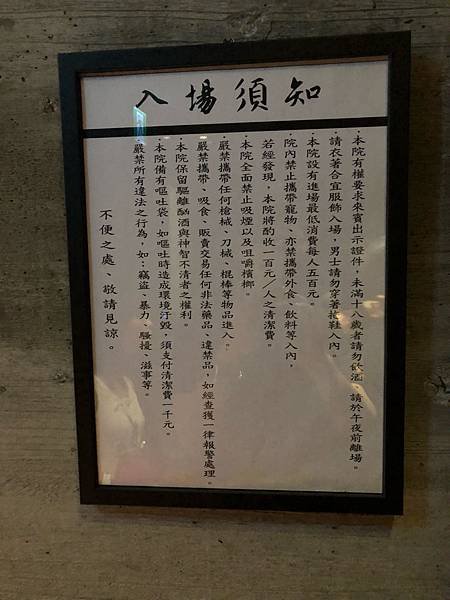 入場須知
·本院有權要求來賓出示證件，未滿十八歲者請勿飲酒、請於午夜前離場。
·請衣著合宜服飾入場，男士請勿穿著拖鞋入內。
·本院設有進場最低消費每人五百元。
·院內禁止攜帶寵物、亦禁攜帶外食、飲料等入內，
若經發現，本院將酌收一百元／人之清潔費。
·本院全面禁止吸煙以及咀嚼檳榔。
·嚴禁攜帶任何槍械、刀械、棍棒等物品進入。
·嚴禁攜帶、吸食、販賣交易任何非法藥品、違禁品，如經查獲一律報警處理。
·本院保留驅離酗酒與神智不清者之權利。
·本院備有嘔吐袋，如嘔吐時造成環境汙毀，須支付清潔費一千元。
·嚴禁所有違法之行為，如：竊盜、暴力、騷擾、滋事等。
不便之處、敬請見諒。